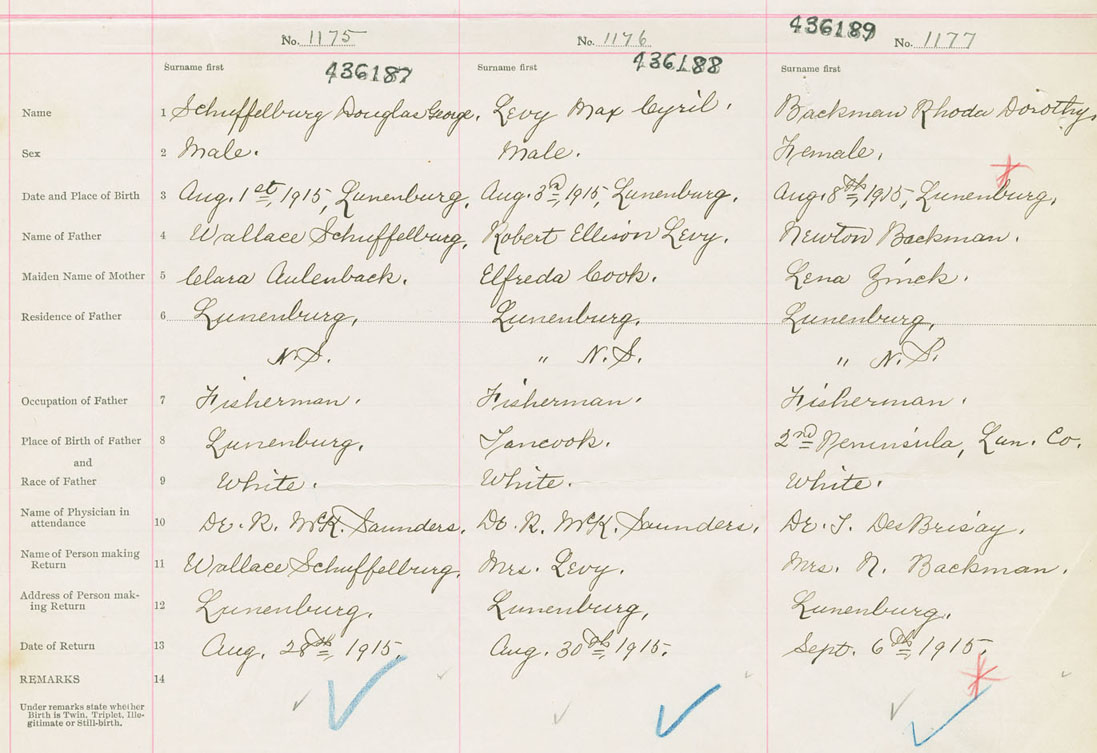 436189
No. 1175 No. 1176 No. 1177
Surname first Surname first Surname first
436187 436188
Name 1 Schuffelburg Douglas George. Levy Max Cyril. Backman Rhoda Dorothy.
Sex 2 Male. Male. Female.
Date and Place of Birth 3 Aug. 1st, 1915, Lunenburg. Aug. 3rd, 1915, Lunenburg. Aug. 8th, 1915, Lunenburg.
Name of Father 4 Wallace Schuffelburg. Robert Ellison Levy. Newton Backman.
Maiden Name of Mother 5 Clara Aulenback. Elfreda Cook. Lena Zinck.
Residence of Father 6 Lunenburg, Lunenburg, Lunenburg,
N.S. " N.S. " N.S.
Occupation of Father 7 Fisherman. Fisherman. Fisherman.
Place of Birth of Father 8 Lunenburg. Tancook. 2nd Peninsula, Lun. Co.
and
Race of Father 9 White. White. White.
Name of Physician in
attendance 10 Dr. R. McK. Saunders. Dr. R. McK. Saunders. Dr. T. DesBrisay.
Name of Person making
Return 11 Wallace Schuffelburg. Mrs. Levy. Mrs. N. Backman.
Address of Person mak-
ing Return 12 Lunenburg. Lunenburg, Lunenburg.
Date of Return 13 Aug. 28th, 1915. Aug. 30th, 1915. Sept. 6th, 1915.
REMARKS 14
Under remarks state whether
Birth is Twin, Triplet, Ille-
gitimate or Still-birth.